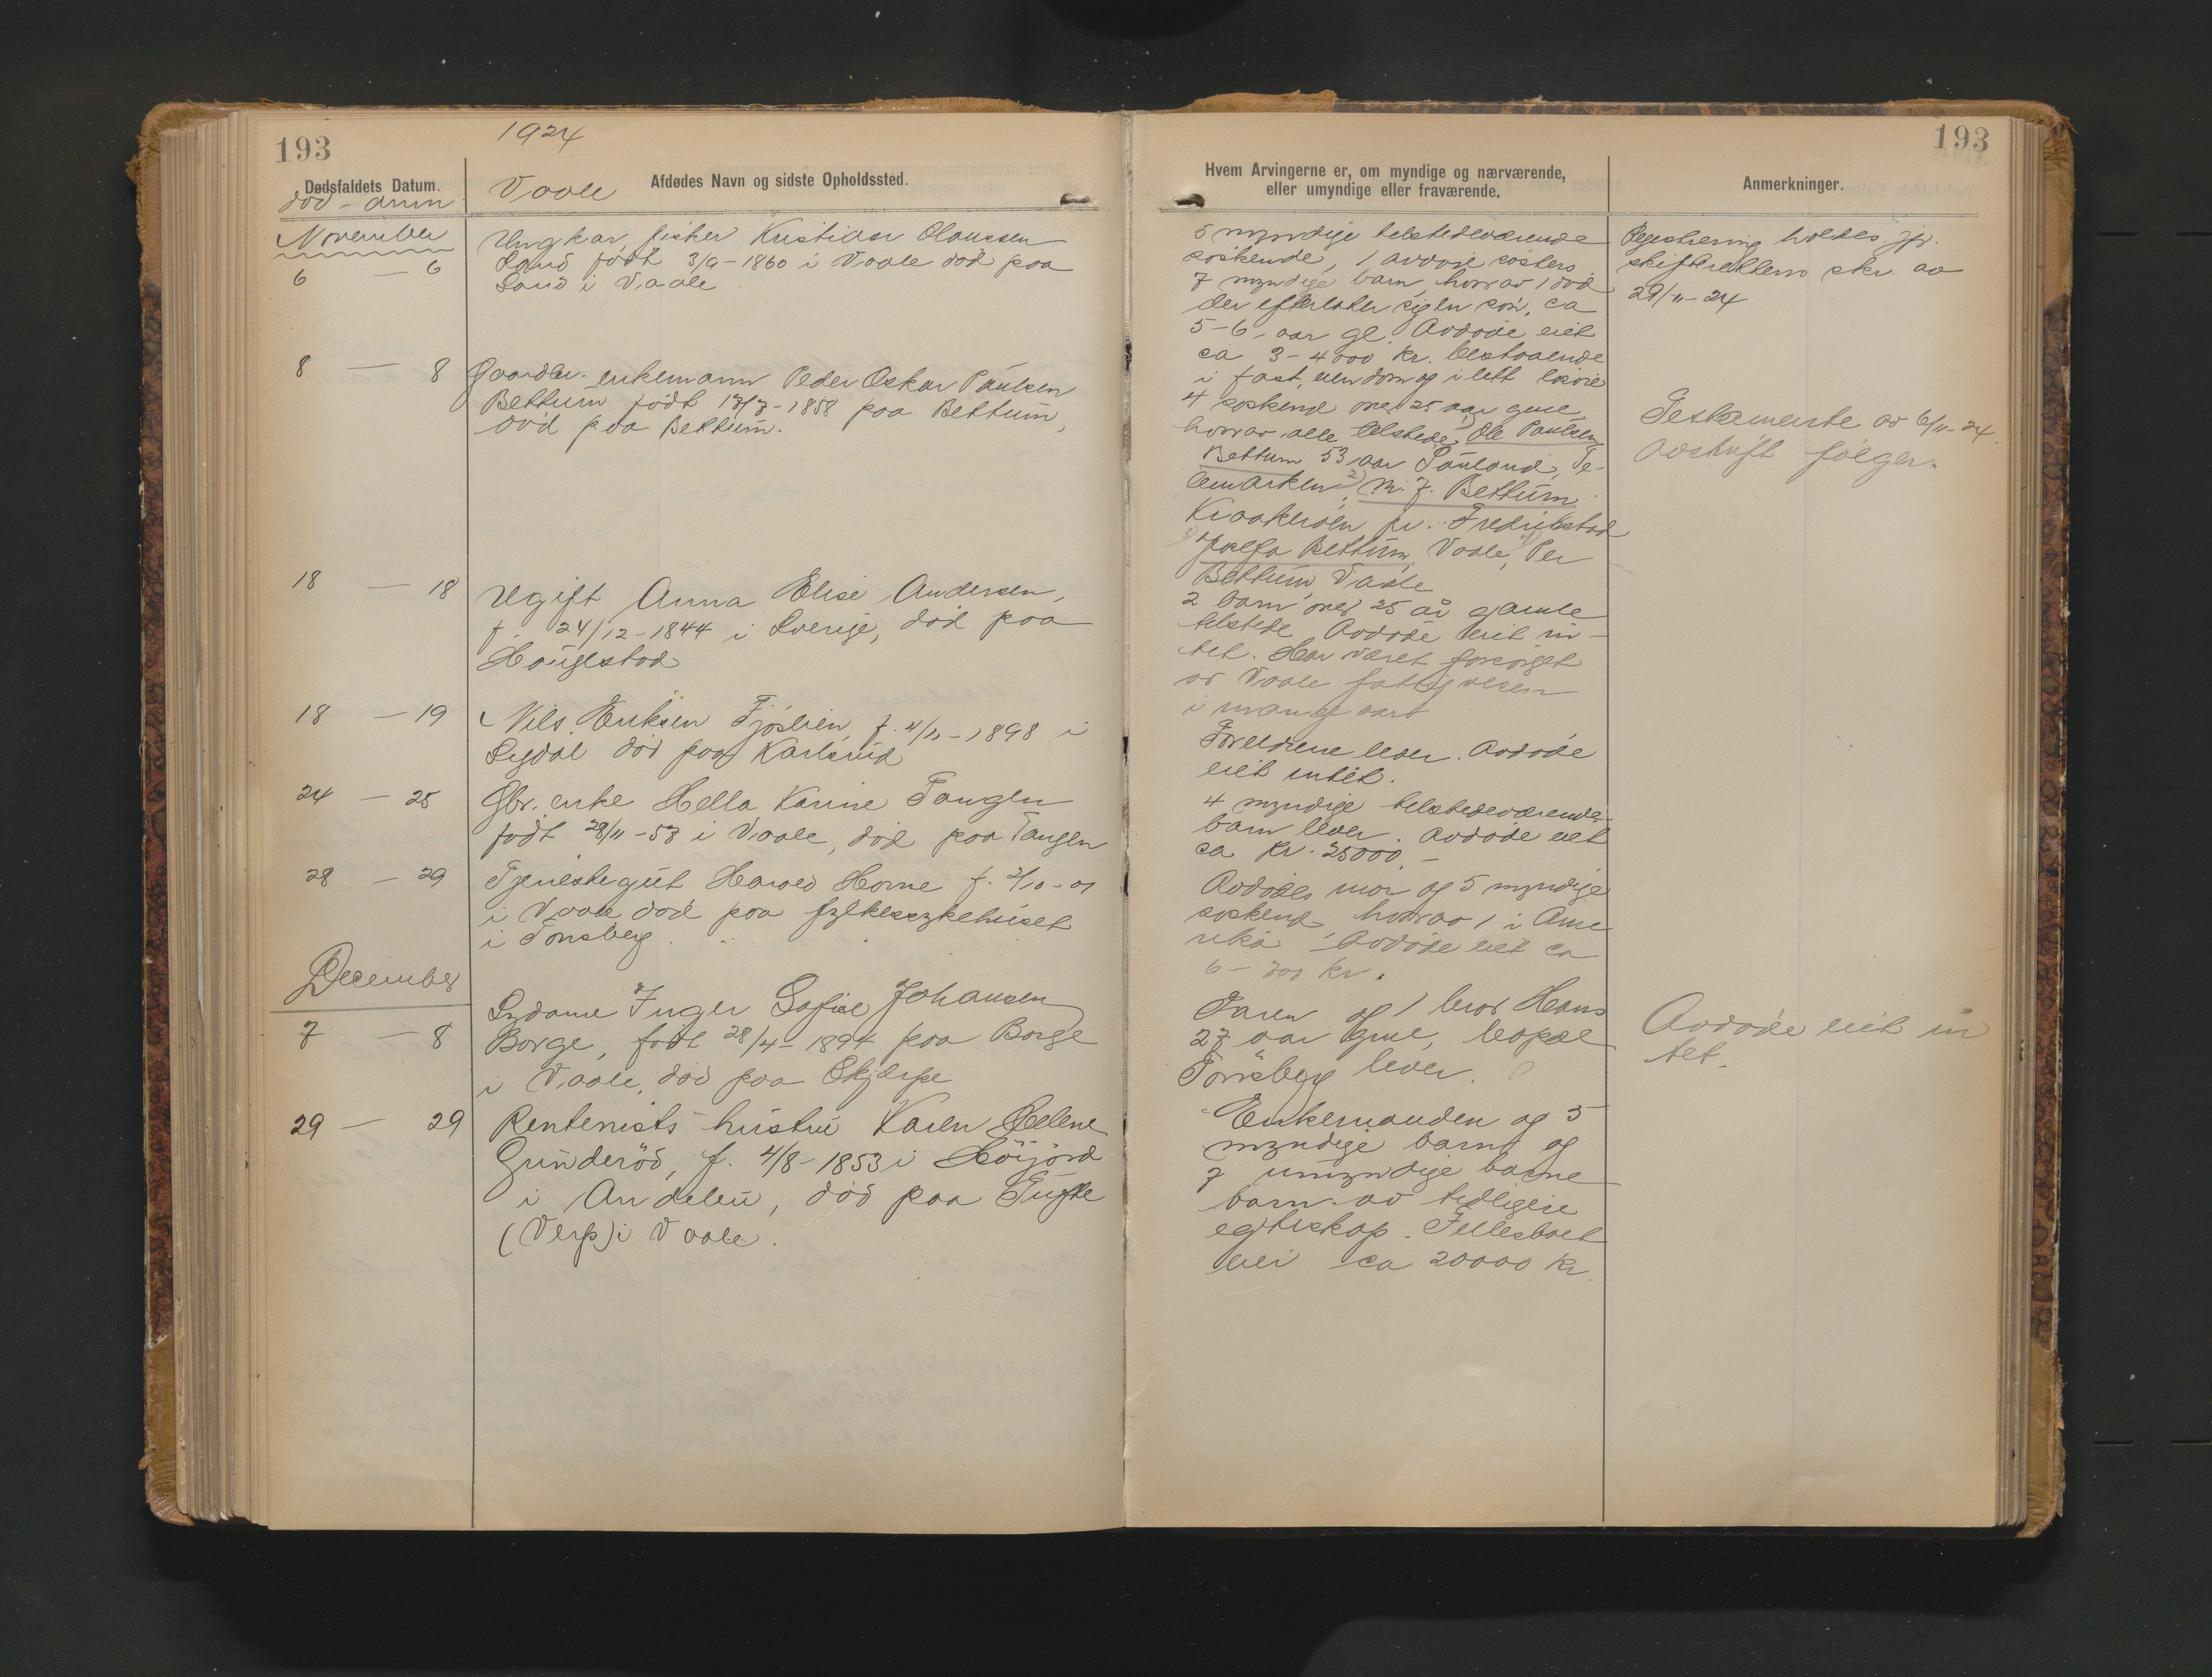 193
1924
Dødsfaldets Datum.
død - anm
Vaale
Afdødes Navn og sidste Opholdssted.
November
6 — 6
Ungkar, fisker Kristian Olaussen
Sand født 3/9-1860 i Vaale død paa
Sand i Vaale
8 — 8
Gaardbr. enkemann Peder Oskar Paulsen
Bettum født 17/7-1858 paa Bettum,
død paa Bettum.
18 — 18
Ugift Anna Elise Andersen,
f. 24/12-1844 i Sverige, død paa
Haugestad
18 — 19
Nils Eriksen Fjøslien, f. 4/11-1898 i
Sigdal død paa Karlsrud
24 — 25
Gbr. enke Hella Karine Tangen
født 28/11-53 i Vaale, død paa Tangen
28 — 29
Tjenestegut Harald Horne f. 2/10-01
i Vaale død paa fylkessykehuset
i Tønsberg
December
7 — 8
Sydame Inger Sofie Johansen
Borge, født 28/4-1894 paa Borge
i Vaale, død paa Skjærpe
29 — 29
Rentenists hustru Karen Helene
Gunderød, f. 4/8-1853 i Høijord
i Andebu, død paa Tufte
(Verp) i Vaale.
193
Hvem Arvingerne er, om myndige og nærværende,
eller umyndige eller fraværende.
Anmerkninger.
5 myndige tilstedeværende
søskende, 1 avdøie søsters
7 myndige barn, hvorav 1 død
der efterlater sig en søn, ca
5-6 aar gl. Avdøde eiet
ca 3-4000 kr. bestaaende
i fast eiendom og i litt løsøre
4 søskend over 25 aar gmle
hvorav alle tilstede, 1) Ole Paulsen
Bettum 53 aar Sauland, Te-
lemarken, 2) M. J. Bettum
Kraakerøen pr. Fredrikstad
Josefa Bettum, Vaale, Per
Bettum, Vaale
2 barn over 25 år gamle
tilstede Avdøde eiet in-
tet. Har været forsørget
av Vaale fattigvesen
i mange aar
Foreldrene lever. Avdøde
eiet intet.
4 myndige tilstedeværende
barn lever. Avdøde eiet
ca kr. 25000.-
Avdødes mor og 5 myndige
søskend, hvorav 1 i Ame
rika Avdøde eiet ca
6-700 kr.
Faren og 1 bror Hans
27 aar gml, bopæl
Tønsberg lever.
Enkemanden og 5
myndige barn og
7 umyndige barne
barn av tidligere
egteskap. Fællesboet
eier ca 20000 kr.
Registrering holdes jfr.
skifterettens skr. av
29/11-24
Testamente av 6/11-24.
Avskrift følger.
Avdøde eiet in
tet.